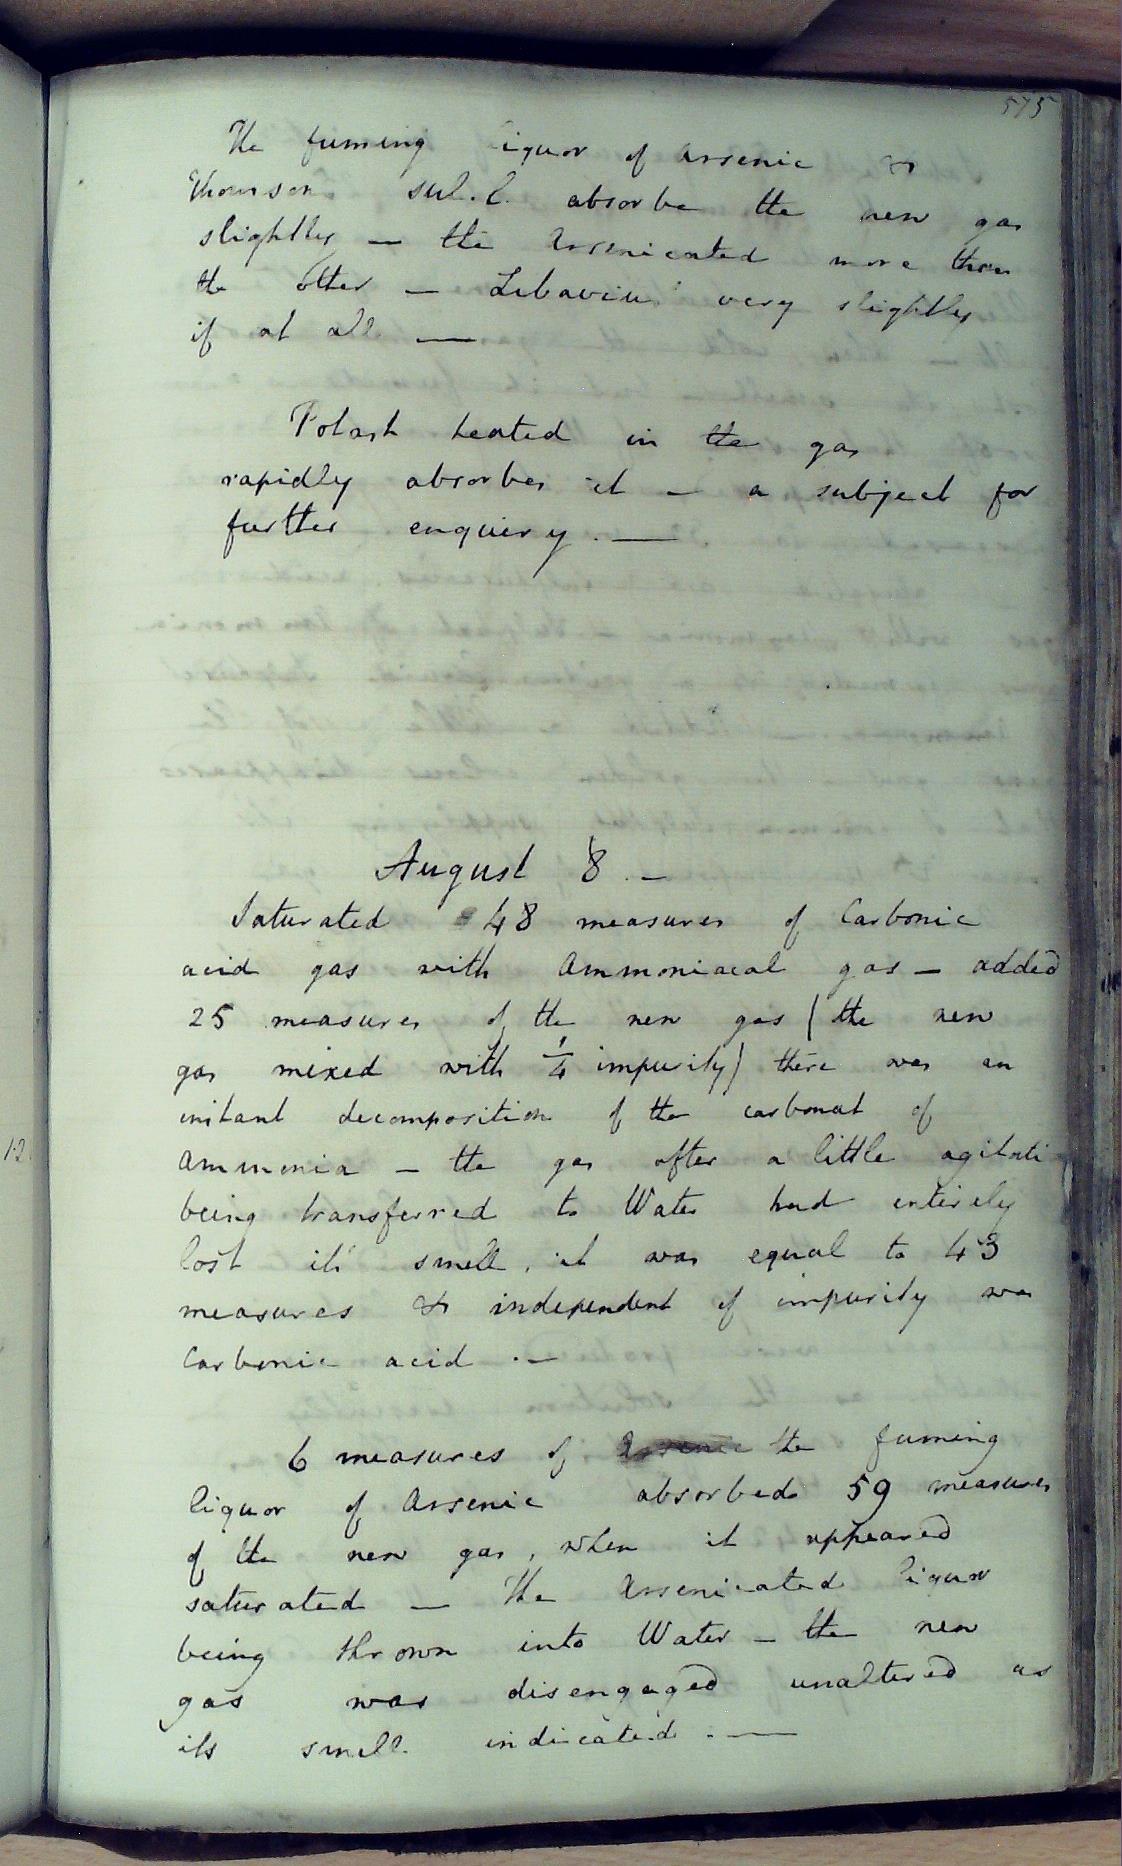 575
The fuming liquor of Arsenic &
Thomson's sul. l. absorbe the new gas
slightly — the Arsenicated more than
the other — Libavius' very slightly
if at all —
Potash heated in the gas
rapidly absorbes it — a subject for
further enquiery. —
August 8. —
Saturated 48 measures of Carbonic
acid gas with Ammoniacal gas — added
25 measures of the new gas (the new
gas mixed with 1/4 impurity) there was an
instant decomposition of the carbonat of
Ammonia — the gas after a little agitati
being transferred to Water had entirely
lost it's smell, it was equal to 43
measures & independent of impurity was
Carbonic acid. —
6 measures of Arsenic the fuming
liquor of Arsenic absorbed 59 measures
of the new gas, when it appeared
saturated — The Arsenicated liquor
being thrown into Water — the new
gas was disengaged unaltered as
its smell indicated. —
12